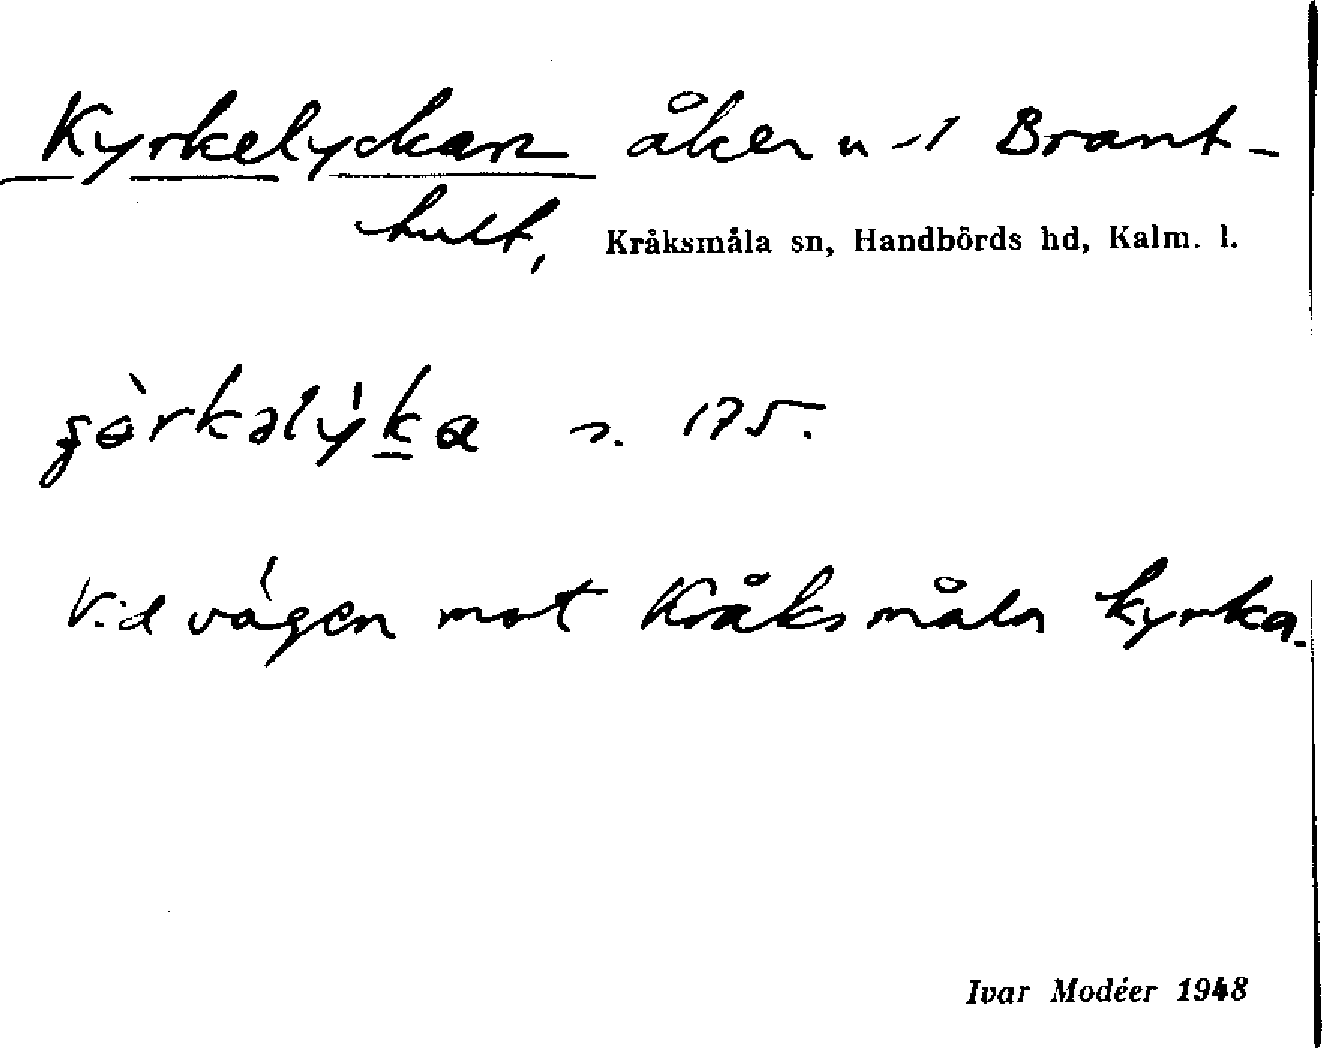 Kyrkelyckan åker u Brant-
hult, Kråksmåla sn, Handbörds hd, Kalm. l.
s. 175.
Vid vägen mot Kråksmåla kyrka.
Ivar Modéer 1948